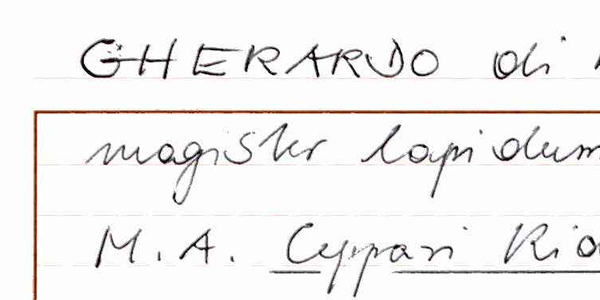 GHERARDO di
magister lapidum
M. A. Ceppari